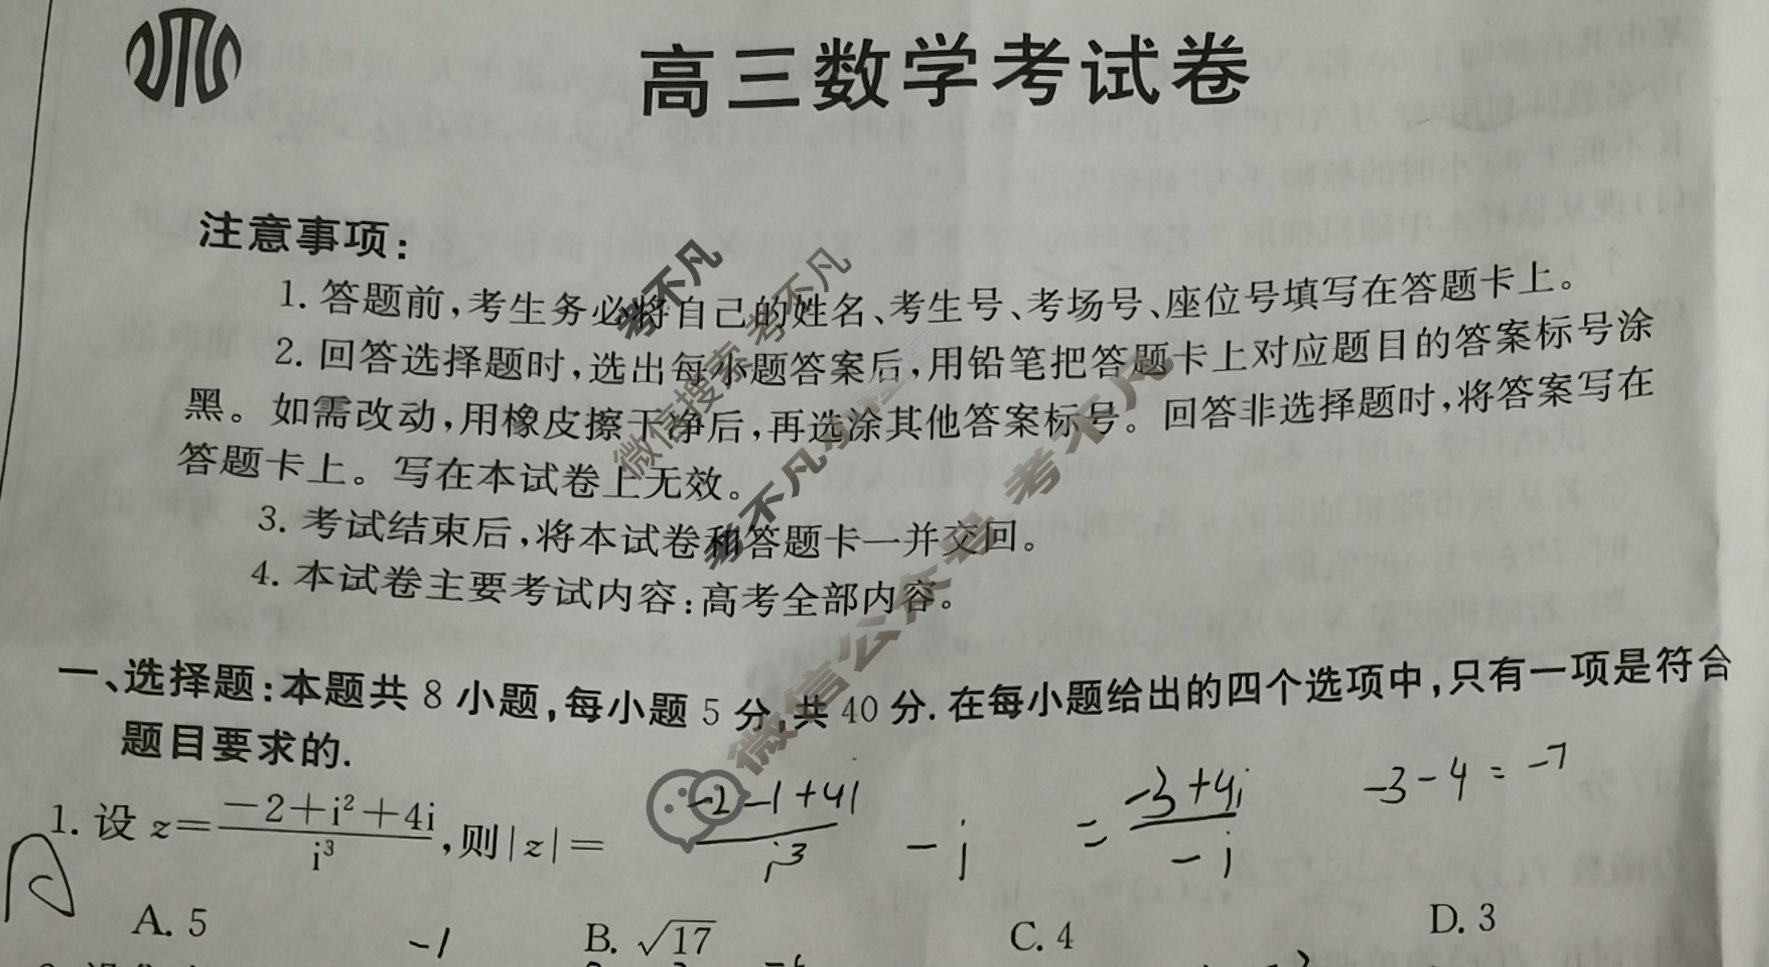 高三数学考试卷
注意事项:
1. 答题前,考生务必将自己的姓名、考生号、考场号、座位号填写在答题卡上。
2. 回答选择题时,选出每小题答案后,用铅笔把答题卡上对应题目的答案标号涂
黑。如需改动,用橡皮擦干净后,再选涂其他答案标号。回答非选择题时,将答案写在
答题卡上。写在本试卷上无效。
3. 考试结束后,将本试卷和答题卡一并交回。
4. 本试卷主要考试内容:高考全部内容。
考不凡
微信搜索 考不凡
微信公众号 考不凡
一、选择题:本题共 8 小题,每小题 5 分,共 40 分. 在每小题给出的四个选项中,只有一项是符合
题目要求的.
1. 设 z=(-2+i²+4i)/i³,则|z|=
(-2-1+4i)/i³ -i =(-3+4i)/(-i) -3-4=-7
A. 5 B. √17 C. 4 D. 3
-1